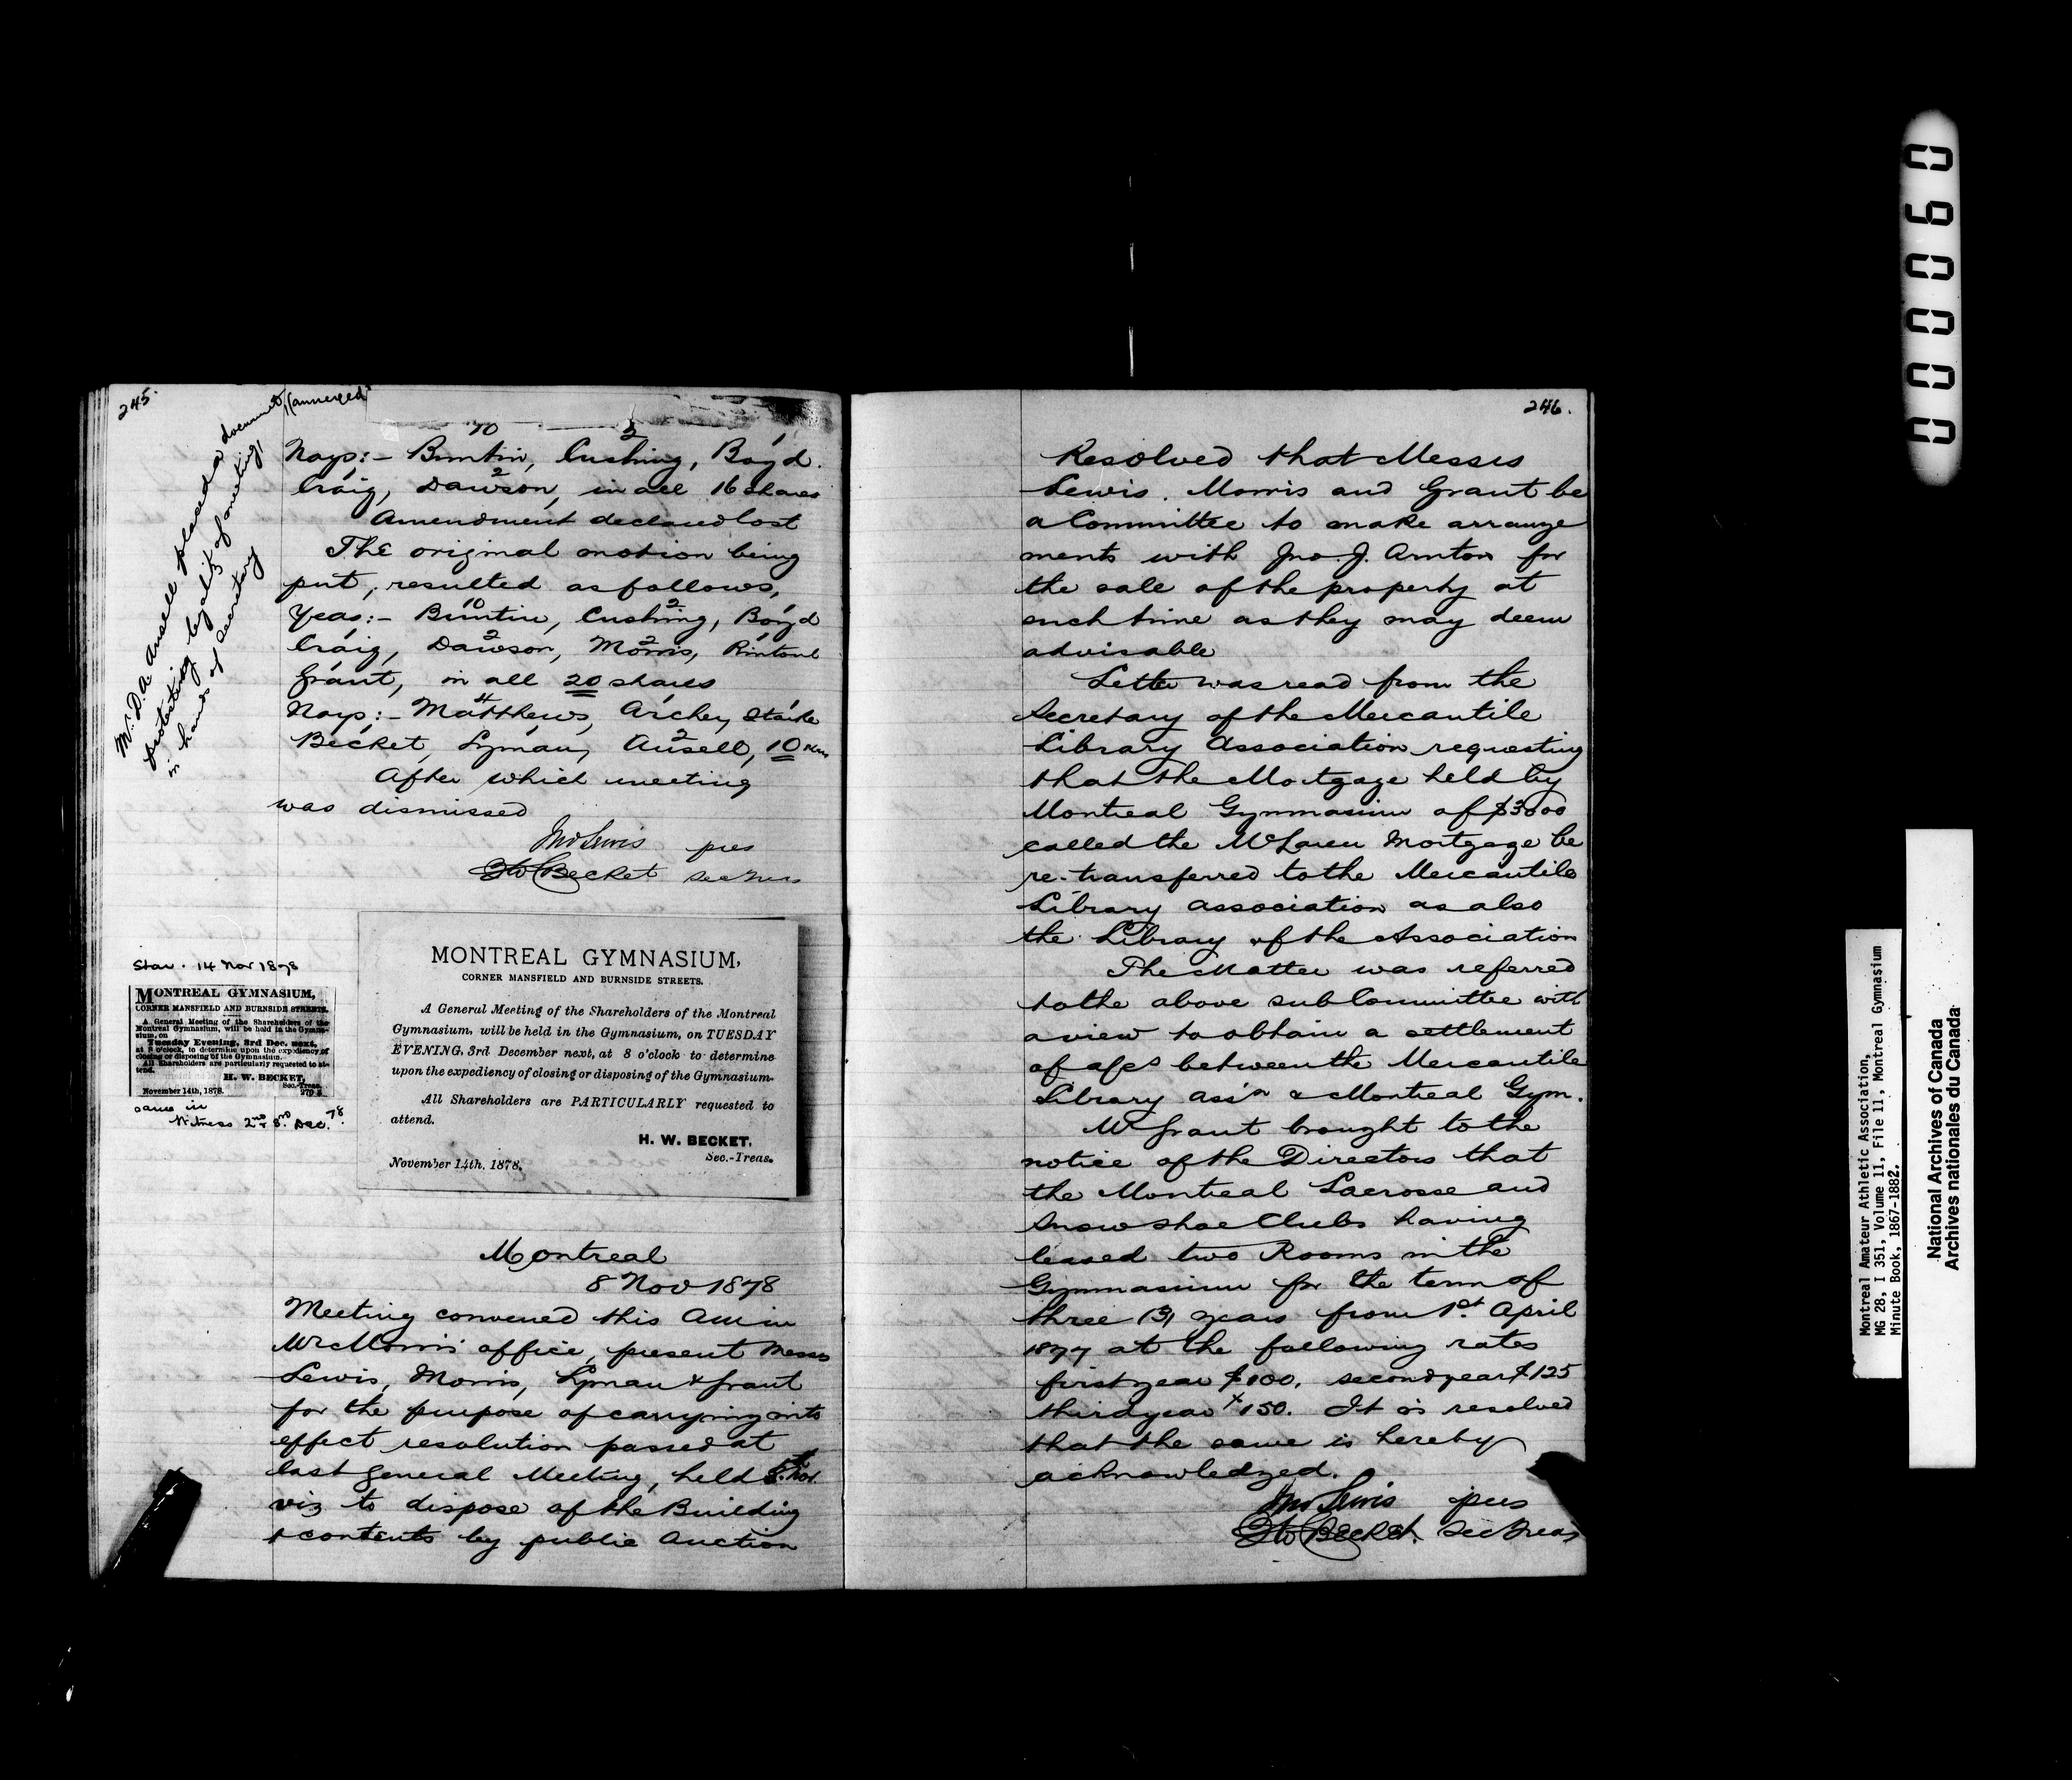 245.
Mr. D. A. Ansell placed a document, (annexed)
protesting legality of meeting,
in hands of Secretary
10 2 1
Nays:- Buntin, Cushing, Boyd.
Craig, Dawson, in all 16 shares
Amendment declared lost
The original motion being
put, resulted as follows,
Yeas:- Buntin, Cushing, Boyd
Craig, Dawson, Morris, Rintoul
Grant, in all 20 shares
Nays:- Matthews, Archer, Starke
Becket, Lyman, Ansell, 10
After which meeting
was dismissed
Jno Lewis pres
HW Becket Sec Treas
Star. 14 Nov 1878
MONTREAL GYMNASIUM,
CORNER MANSFIELD AND BURNSIDE STREETS.
A General Meeting of the Shareholders of the
Montreal Gymnasium, will be held in the Gymna-
sium, on
Tuesday Evening, 3rd Dec. next,
at 8 o'clock, to determine upon the expediency of
closing or disposing of the Gymnasium.
All Shareholders are particularly requested to at-
tend.
H. W. BECKET,
Sec.-Treas.
November 14th, 1878. 270
same in
Witness 2nd & 3rd Dec. 78.
MONTREAL GYMNASIUM,
CORNER MANSFIELD AND BURNSIDE STREETS.
A General Meeting of the Shareholders of the Montreal
Gymnasium, will be held in the Gymnasium, on TUESDAY
EVENING, 3rd December next, at 8 o'clock to determine
upon the expediency of closing or disposing of the Gymnasium.
All Shareholders are PARTICULARLY requested to
attend.
H. W. BECKET,
Sec.-Treas.
November 14th, 1878.
Montreal
8 Nov 1878
Meeting convened this Am in
Mr Morris' office, present Messrs
Lewis, Morris, Lyman & Grant
for the purpose of carrying into
effect resolution passed at
last General Meeting, held 5th Nov.
viz to dispose of the Building
& contents by public Auction
246.
Resolved that Messrs
Lewis. Morris and Grant be
a Committee to make arrange
ments with Jno. J. Arnton for
the sale of the property at
such time as they may deem
advisable
Letter was read from the
Secretary of the Mercantile
Library Association requesting
that the Mortgage held by
Montreal Gymnasium of $3000
called the McLaren Mortgage be
re-transferred to the Mercantile
Library Association as also
the Library of the Association
The Matter was referred
to the above sub Committee with
a view to obtain a settlement
of a/cs between the Mercantile
Library Ass'n & Montreal Gym.
Mr Grant brought to the
notice of the Directors that
the Montreal Lacrosse and
Snow shoe Clubs having
leased two Rooms in the
Gymnasium for the term of
three (3) years from 1st. April
1877 at the following rates
first year $100, second year $125
third year $150. It is resolved
that the same is hereby
acknowledged.
Jno Lewis pres
HW Becket. Sec Treas
000060
Montreal Amateur Athletic Association,
MG 28, I 351, Volume 11, File 11, Montreal Gymnasium
Minute Book, 1867-1882.
National Archives of Canada
Archives nationales du Canada